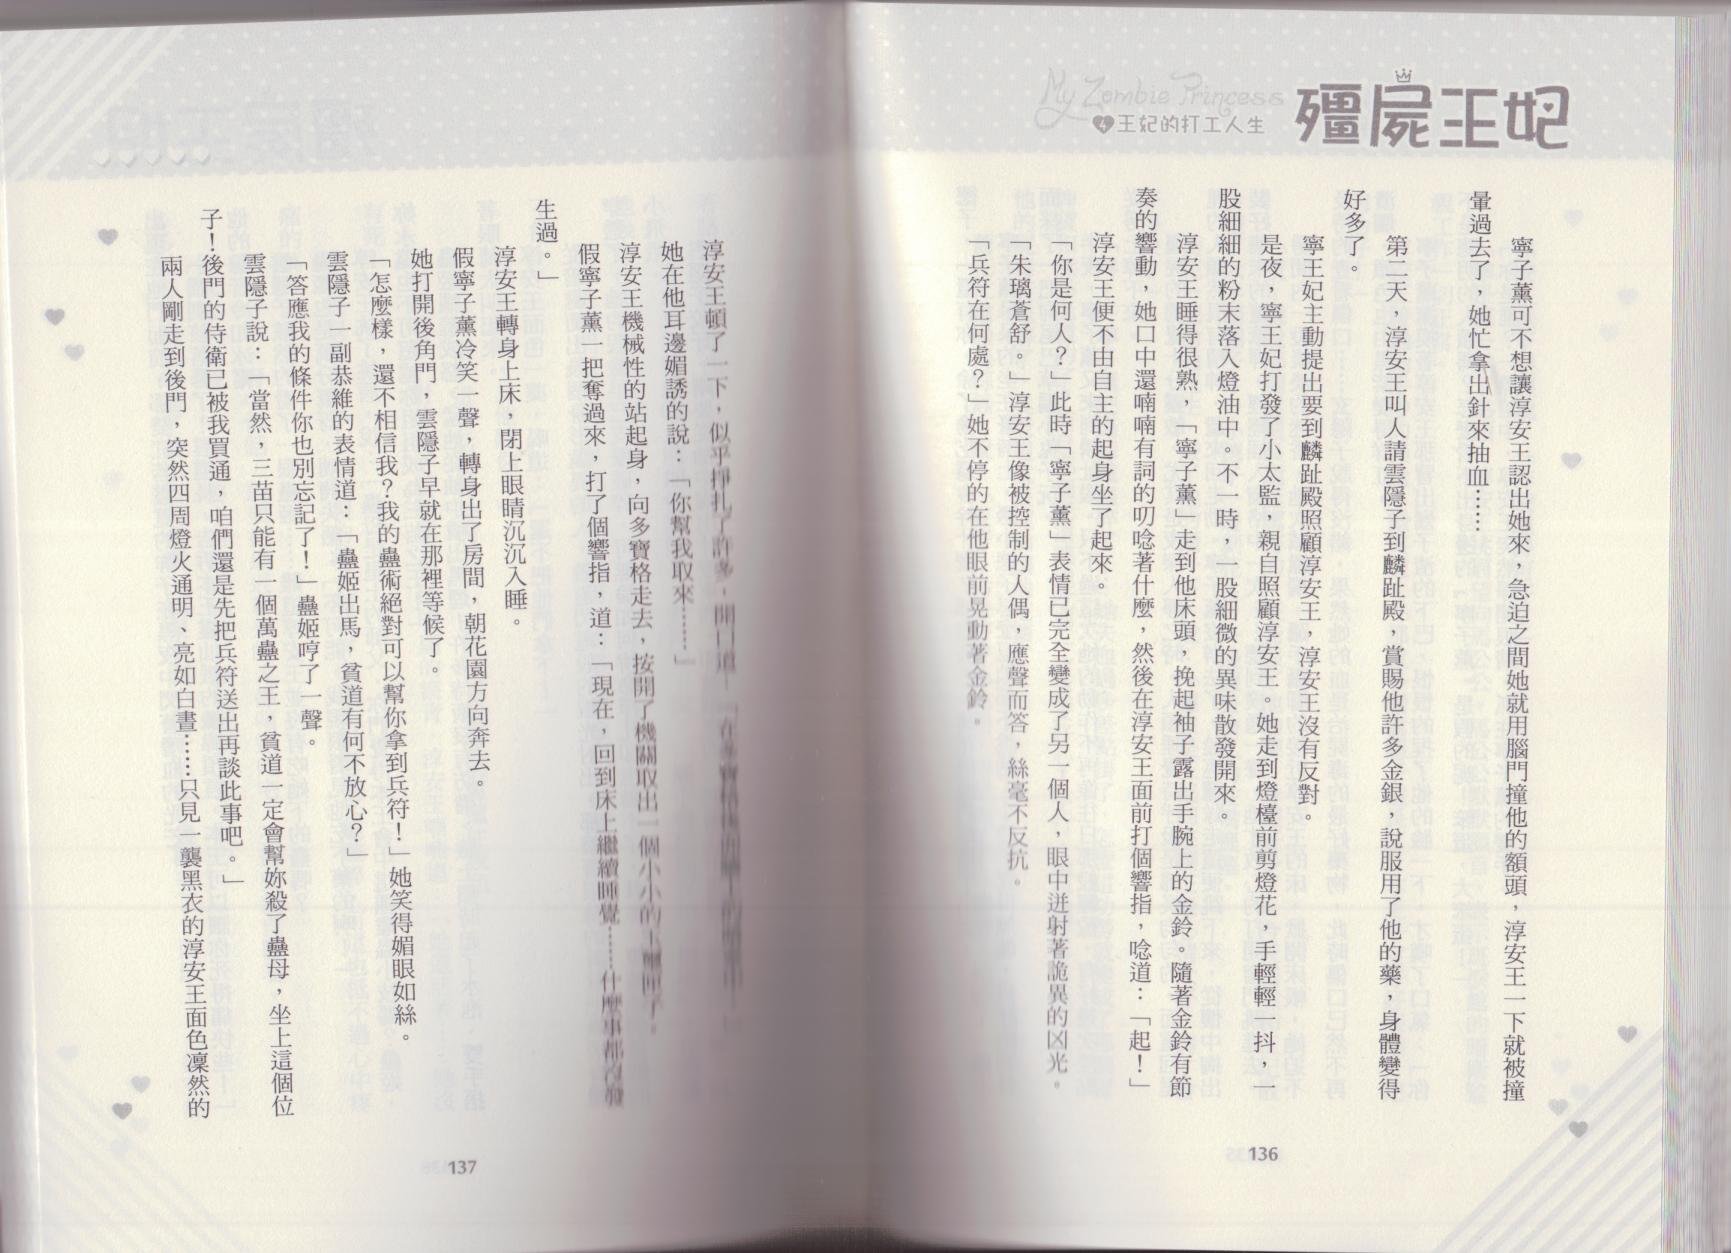 My Zombie Princess
殭屍王妃
4 王妃的打工人生
寧子薰可不想讓淳安王認出她來，急迫之間她就用腦門撞他的額頭，淳安王一下就被撞
暈過去了，她忙拿出針來抽血……
第二天，淳安王叫人請雲隱子到麟趾殿，賞賜他許多金銀，說服用了他的藥，身體變得
好多了。
寧王妃主動提出要到麟趾殿照顧淳安王，淳安王沒有反對。
是夜，寧王妃打發了小太監，親自照顧淳安王。她走到燈檯前剪燈花，手輕輕一抖，一
股細細的粉末落入燈油中。不一時，一股細微的異味散發開來。
淳安王睡得很熟，「寧子薰」走到他床頭，挽起袖子露出手腕上的金鈴。隨著金鈴有節
奏的響動，她口中還喃喃有詞的叨唸著什麼，然後在淳安王面前打個響指，唸道：「起！」
淳安王便不由自主的起身坐了起來。
「你是何人？」此時「寧子薰」表情已完全變成了另一個人，眼中迸射著詭異的凶光。
「朱璃蒼舒。」淳安王像被控制的人偶，應聲而答，絲毫不反抗。
「兵符在何處？」她不停的在他眼前晃動著金鈴。
136
淳安王頓了一下，似乎掙扎了許多，開口道：「在多寶格
她在他耳邊媚誘的說：「你幫我取來……」
淳安王機械性的站起身，向多寶格走去，按開了機關取出一個小小的上鎖匣子。
假寧子薰一把奪過來，打了個響指，道：「現在，回到床上繼續睡覺……什麼事都沒發
生過。」
淳安王轉身上床，閉上眼睛沉沉入睡。
假寧子薰冷笑一聲，轉身出了房間，朝花園方向奔去。
她打開後角門，雲隱子早就在那裡等候了。
「怎麼樣，還不相信我？我的蠱術絕對可以幫你拿到兵符！」她笑得媚眼如絲。
雲隱子一副恭維的表情道：「蠱姬出馬，貧道有何不放心？」
「答應我的條件你也別忘記了！」蠱姬哼了一聲。
雲隱子說：「當然，三苗只能有一個萬蠱之王，貧道一定會幫妳殺了蠱母，坐上這個位
子！後門的侍衛已被我買通，咱們還是先把兵符送出再談此事吧。」
兩人剛走到後門，突然四周燈火通明、亮如白晝……只見一襲黑衣的淳安王面色凜然的
137